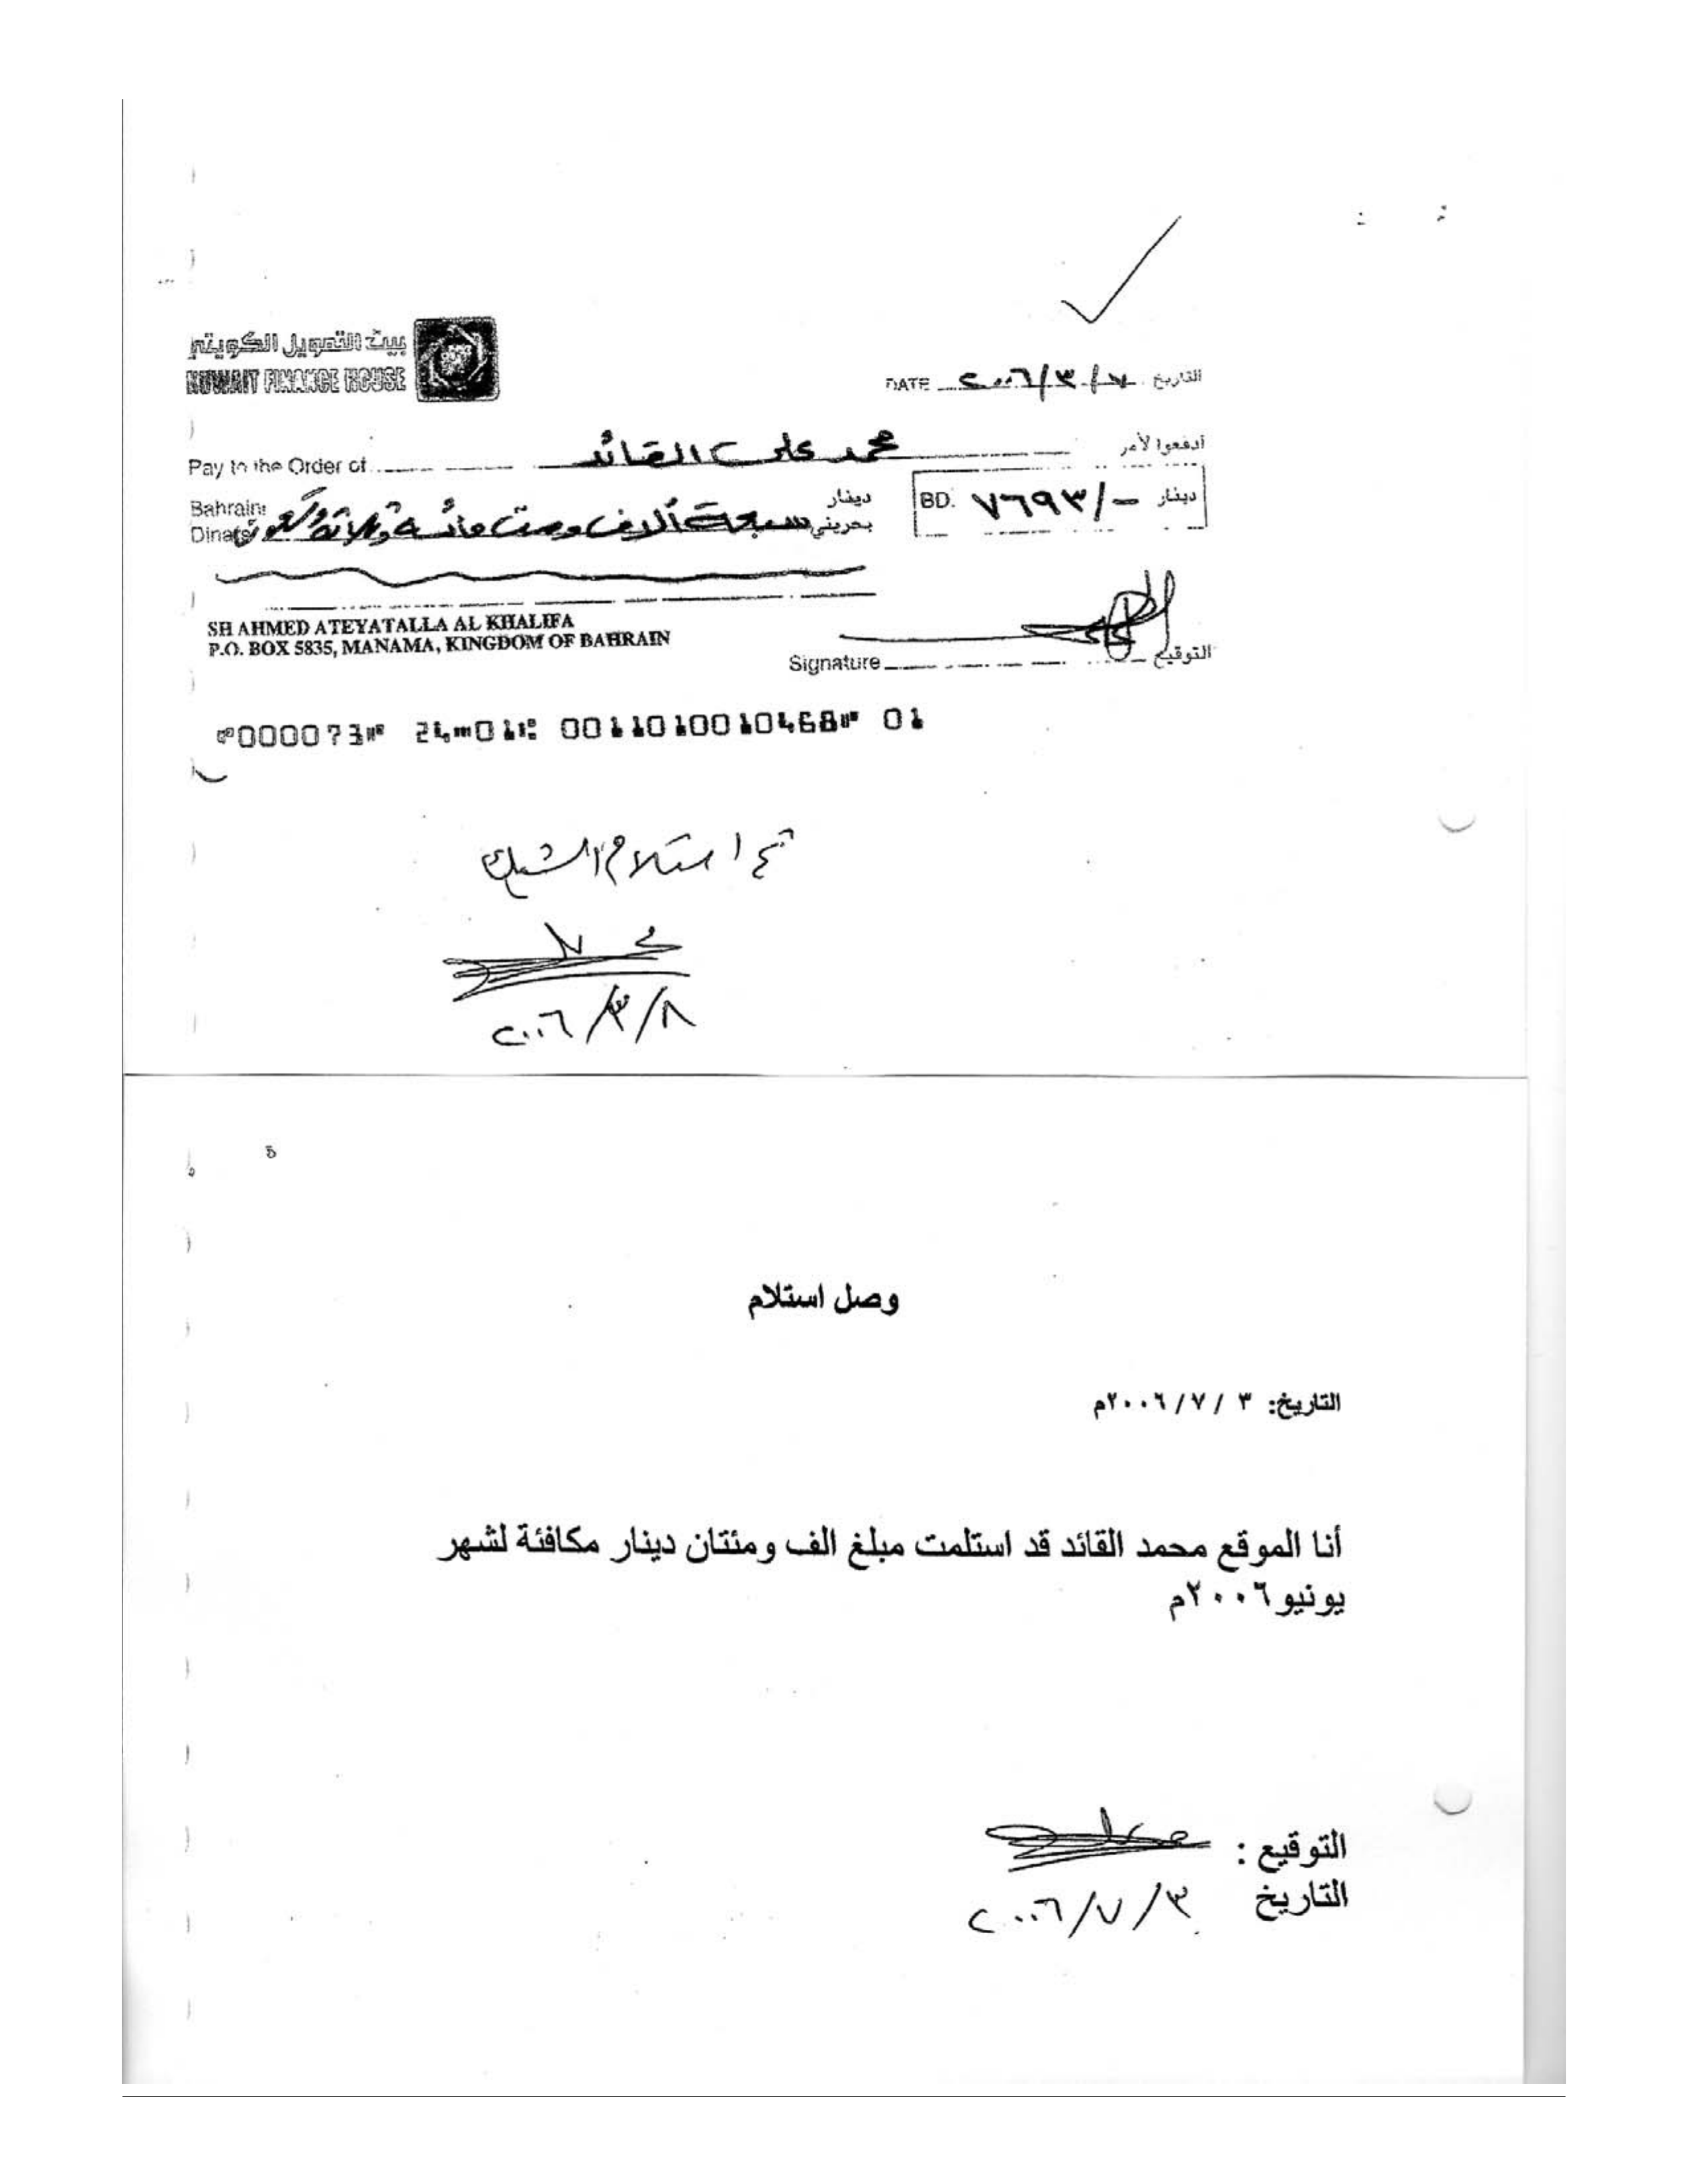 بيت التمويل الكويتي
KUWAIT FINANCE HOUSE
DATE ٢٠٠٦/٣/٧ التاريخ
Pay to the Order of محمد علي القائد أدفعوا لأمر
Bahraini Dinars سبعة آلاف وست مائة وثلاثة دينار بحريني
BD. ٧٦٩٣/- دينار
SH AHMED ATEYATALLA AL KHALIFA
P.O. BOX 5835, MANAMA, KINGDOM OF BAHRAIN
Signature التوقيع
000073 24 01 001101001046801
تم استلام الشيك
٢٠٠٦/٣/٨
وصل استلام
التاريخ: ٣ /٧ /٢٠٠٦م
أنا الموقع محمد القائد قد استلمت مبلغ الف ومئتان دينار مكافئة لشهر
يونيو٢٠٠٦م
التوقيع :
التاريخ ٢٠٠٦/٧/٣